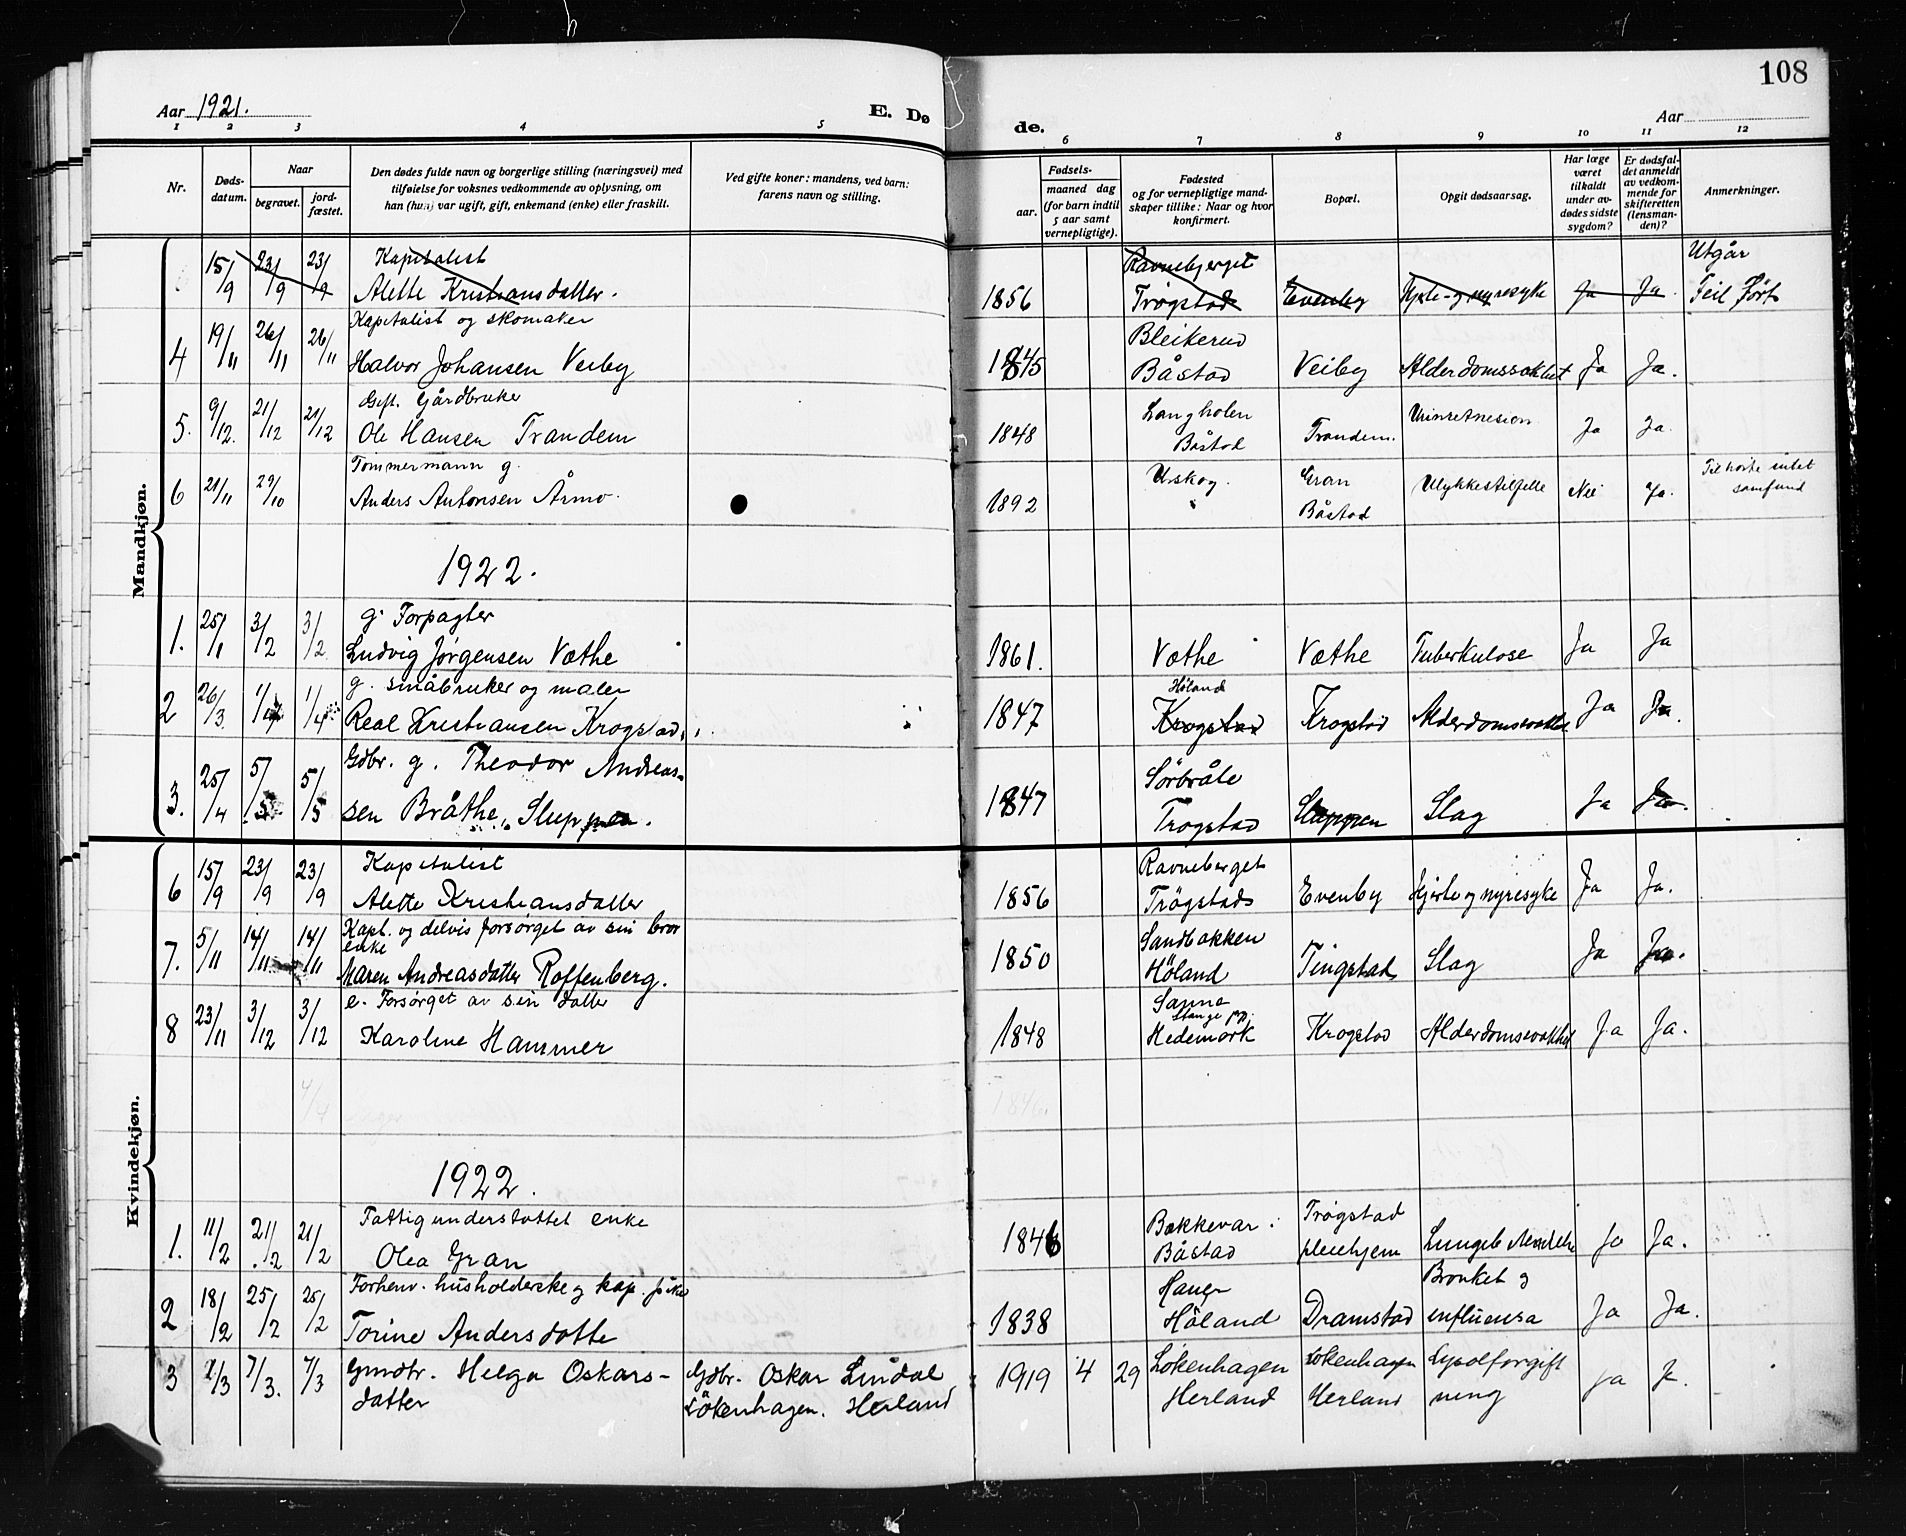 108
Aar 1921.
E. Dø
de.
Aar
1 2 3 4 5 6 7 8 9 10 11 12
Nr.
Døds-
datum.
Naar
begravet.
jord-
fæstet.
Den dødes fulde navn og borgerlige stilling (næringsvei) med
tilføielse for voksnes vedkommende av oplysning, om
han (hun) var ugift, gift, enkemand (enke) eller fraskilt.
Ved gifte koner: mandens, ved barn:
farens navn og stilling.
Fødsels-
aar.
maaned dag
(for barn indtil
5 aar samt
vernepligtige).
Fødested
og for vernepligtige mand-
skaper tillike: Naar og hvor
konfirmert.
Bopæl.
Opgit dødsaarsag.
Har læge
været
tilkaldt
under av-
dødes sidste
sygdom?
Er dødsfal-
det anmeldt
av vedkom-
mende for
skifteretten
(lensman-
den)?
Anmerkninger.
Mandkjøn.
Kapitalist Ravneberget Utgår
15/9 23/9 23/9 Alette Kristiansdatter. 1856 Trøgstad Evenby Hjerte- og nyresyke Ja Ja. Feil ført
Kapitalist og skomaker Bleikerud
4 19/11 26/11 26/11 Halvor Johansen Veiby 1845 Båstad Veiby Alderdomssvakhet Ja Ja.
Gift. Gårdbruker Langholen
5. 9/12. 21/12 21/12 Ole Hansen Trandem 1848 Båstad Trandem. Urinretnesion Ja Ja.
Tømmermann g. Uskog. Gran Tilhørte intet
6 21/11 29/10 Anders Antonsen Årmo. 1892 " Båstad Ulykkestilfelle Nei Ja. samfund
1922.
g. Forpagter
1. 25/1 3/2 3/2 Ludvig Jørgensen Væthe 1861. Væthe Væthe Tuberkulose Ja Ja
g. småbruker og maler Høland
2 26/3 1/4 1/4 Real Kristiansen Krogstad. 1847 Krogstad Krogstad Alderdomssvakhet Ja Ja.
Gdbr. g. Theodor Andreas- Sörbråte
3. 25/4 5/5 5/5 sen Bråthe, Sluppen. 1847 Trogstad Sluppen Slag Ja Ja.
Kvindekjøn.
Kapitalist Ravneberget
6 15/9 23/9 23/9 Alette Kristiansdatter 1856 Trögstads Evenby Hjerte og nyresyke Ja Ja.
Kapt. og delvis forsørget av sin bror Sandbakken
enke
7. 5/11 14/11 14/11 Maren Andreasdatter Roffenberg. 1850 Höland Tingstad Slag Ja Ja.
e. Forsørget av sin datter Sanne
Stange pg.
8 23/11 3/12 3/12 Karoline Hammer 1848 Hedemark Krogstad Alderdomssvakhet Ja Ja.
1922.
Fattigunderstøttet enke Bækkevar Trögstad
1. 11/2 21/2 21/2 Olea Gran 1846 Båstad pleiehjem Lungebetendelse Ja Ja.
Forhenv. husholderske og kap. pike Haugr Bronket og
2 18/2 25/2 25/2 Torine Andersdatte 1838 Höland Dramstad influensa Ja Ja.
3 2/3 7/3. 7/3 Gmdbr. Helga Oskars- Gdbr. Oskar Lindal 1919 4 29 Lökenhagen Lökenhagen Lysolforgift
datter Lökenhagen. Herland Herland Herland ning Ja J.